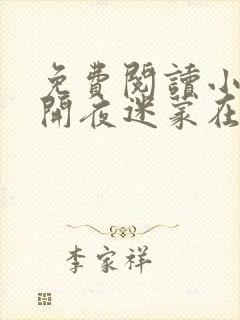 免費閱讀小
開夜迷家在
李家祥